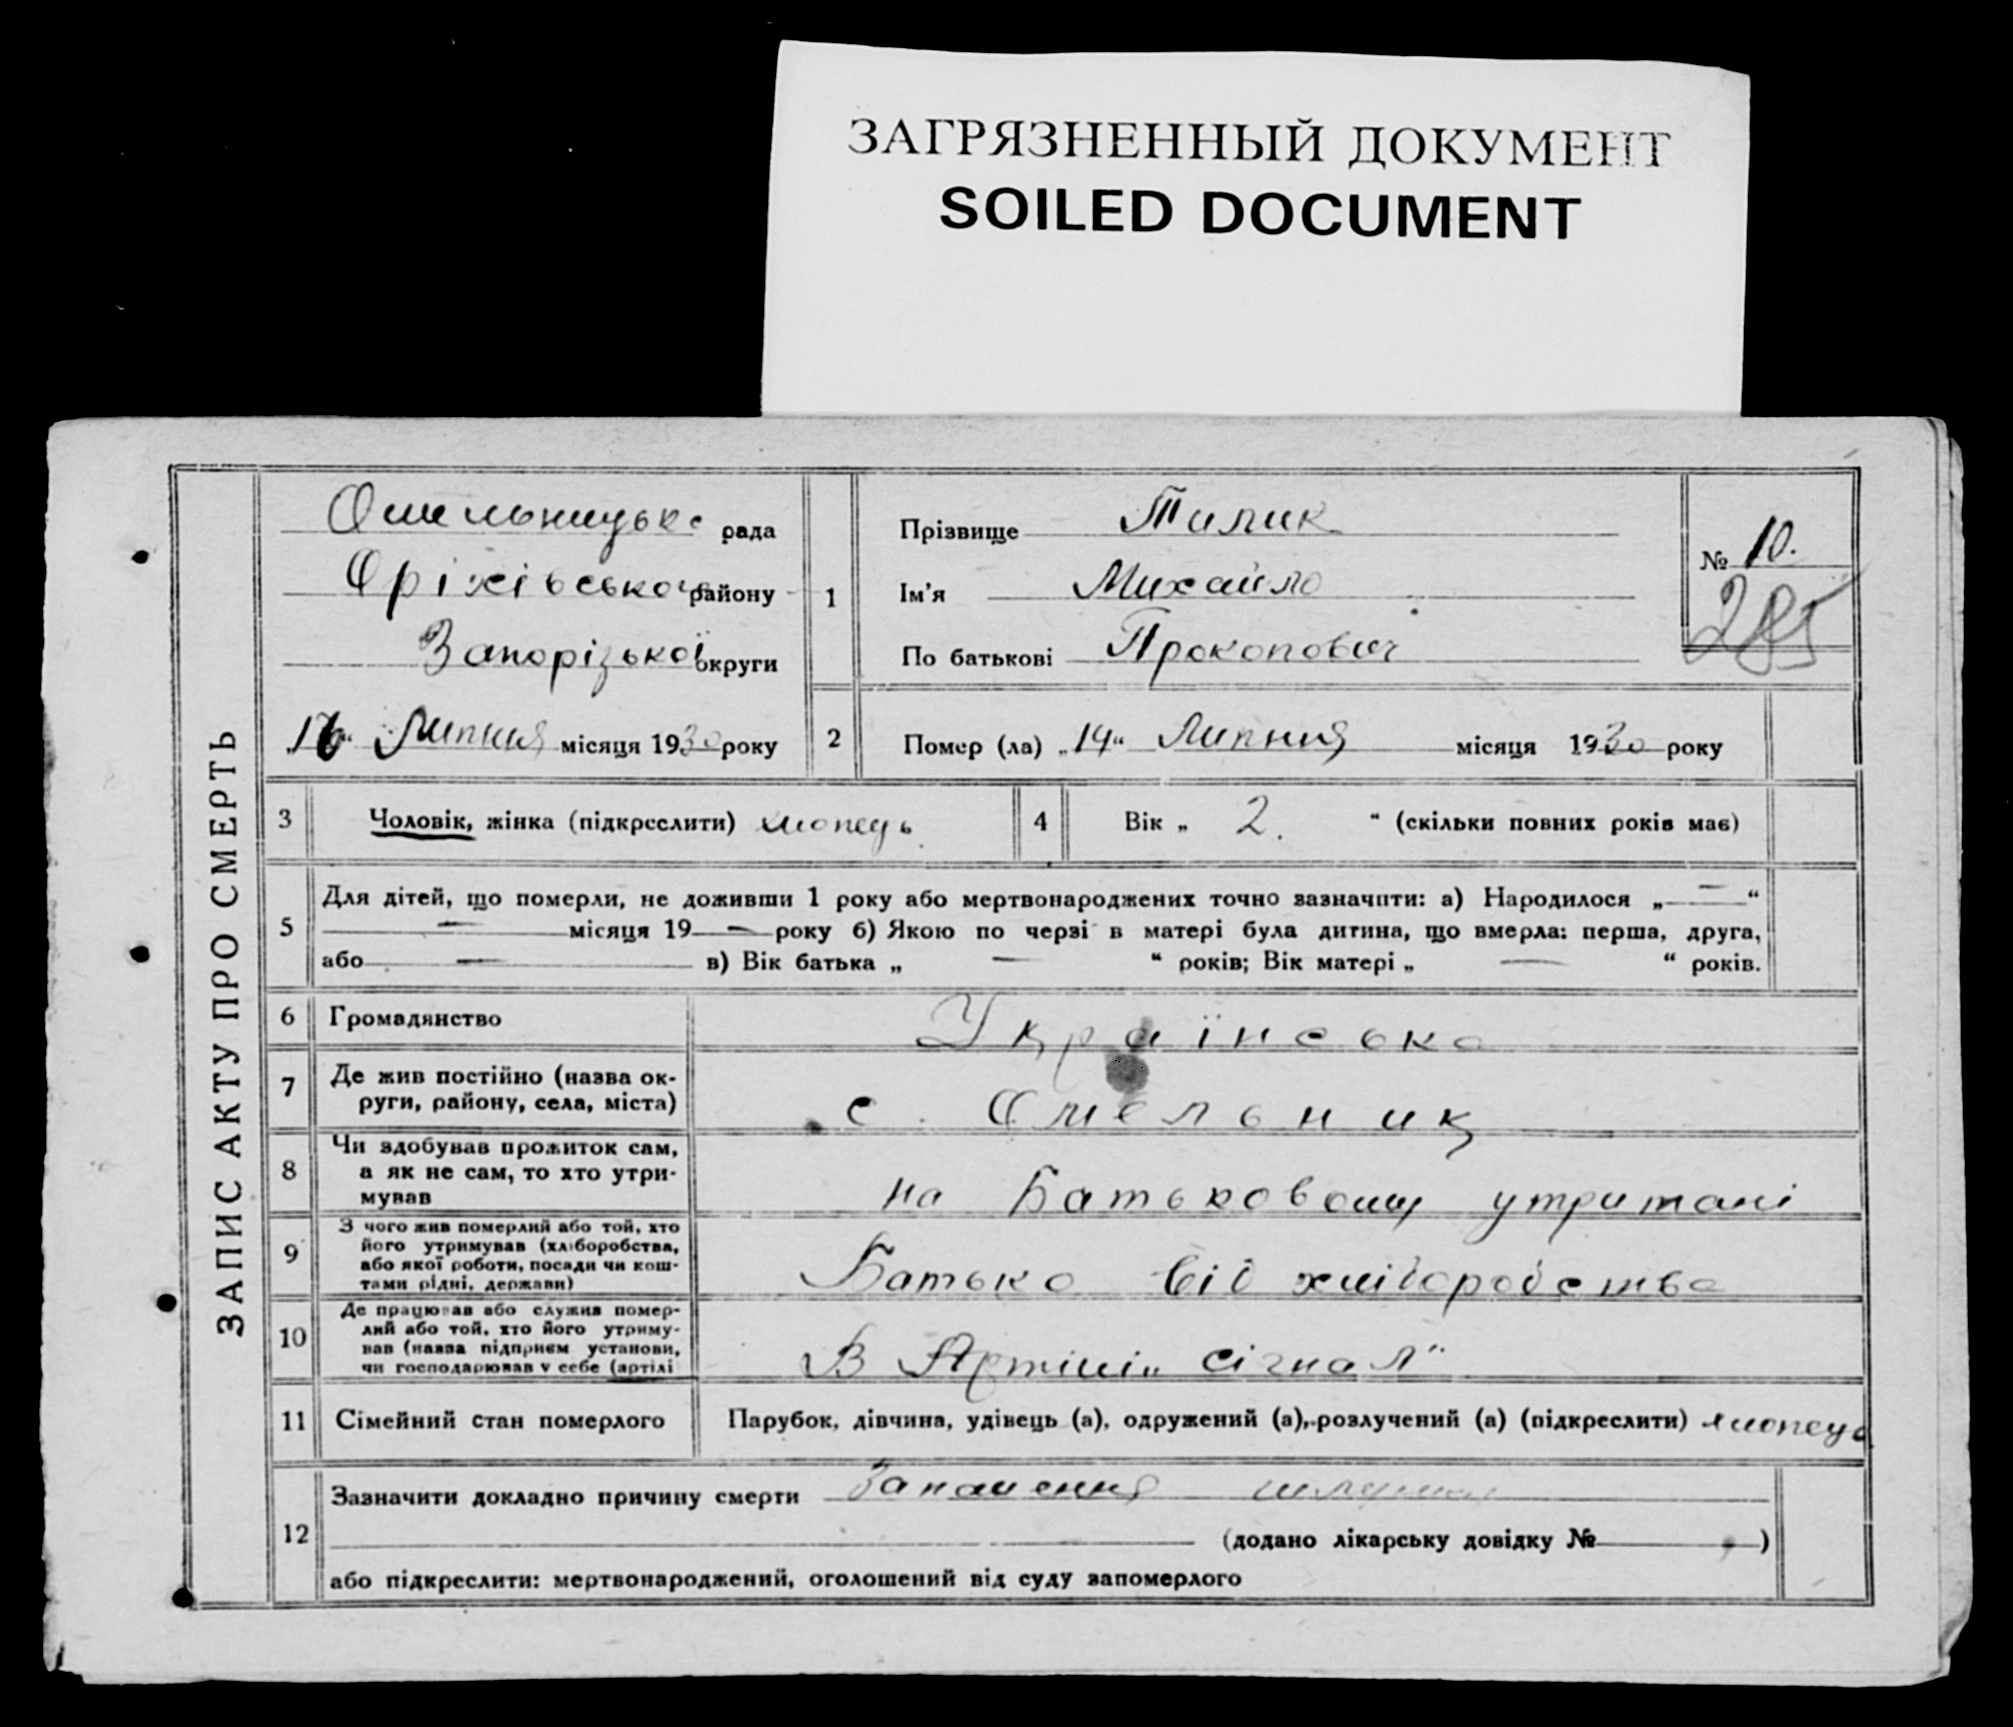 ЗАГРЯЗНЕННЫЙ ДОКУМЕНТ
SOILED DOCUMENT
ЗАПИС АКТУ ПРО СМЕРТЬ
Омельницька рада
Оріхівського району
Запорізької округи
„16“ Липня місяця 1930 року
1
Прізвище Тилик
Ім'я Михайло
По батькові Прокопович
№ 10.
285
2 Помер (ла) „14“ Липня місяця 1930 року
3 Чоловік, жінка (підкреслити) хлопець.
4 Вік „ 2. “ (скільки повних років має)
5 Для дітей, що померли, не доживши 1 року або мертвонароджених точно зазначити: а) Народилося „—“
— місяця 19 — року б) Якою по черзі в матері була дитина, що вмерла: перша, друга,
або — в) Вік батька „ — “ років; Вік матері „ — “ років.
6 Громадянство Українська
7 Де жив постійно (назва ок-
руги, району, села, міста) с. Омельник
8 Чи здобував прожиток сам,
а як не сам, то хто утри-
мував на Батьковому утримані
9 З чого жив померлий або той, хто
його утримував (хліборобства,
або якої роботи, посади чи кош-
тами рідні, держави) Батько від хліборобства
10 Де працював або служив помер-
лий або той, хто його утриму-
вав (назва підприєм установи,
чи господарював у себе (артілі В Артілі „Сігнал"
11 Сімейний стан померлого Парубок, дівчина, удівець (а), одружений (а), розлучений (а) (підкреслити) хлопець
12 Зазначити докладно причину смерти Запалення
(додано лікарську довідку № )
або підкреслити: мертвонароджений, оголошений від суду запомерлого